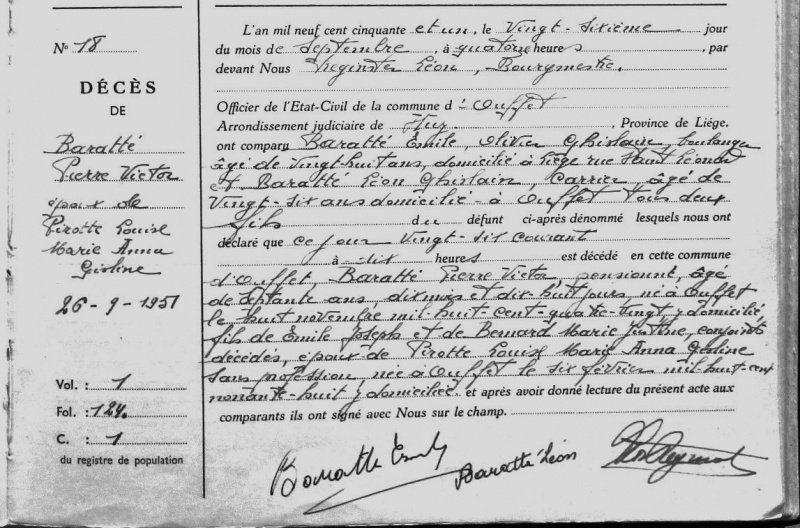 N° 18
DÉCÈS
DE
Baratté
Pierre Victor
époux de
Pirotte Louise
Marie Anna
Gisline
26-9-1951
Vol. : 1
Fol. : 124.
C. : 1
du registre de population
L'an mil neuf cent cinquante et un, le Vingt-sixième jour
du mois de Septembre, à quatorze heures, par
devant Nous Léon, Bourgmestre.
Officier de l'Etat-Civil de la commune d'Ouffet
Arrondissement judiciaire de Huy, Province de Liége.
ont comparu Baratté Emile, Olivier Ghislain, boulanger
âgé de vingt-huit ans, domicilié à Liège rue Saint Léonard
et Baratté Léon Ghislain, Carrier, âgé de
Vingt-six ans domicilié à Ouffet tous deux
fils du défunt ci-après dénommé lesquels nous ont
déclaré que ce jour vingt-six courant
à six heures est décédé en cette commune
d'Ouffet, Baratté Pierre Victor, pensionné, âgé
de septante ans, dix mois et dix huit jours, né à Ouffet
le huit novembre mil-huit-cent-quatre-vingt, y domicilié,
fils de Emile Joseph et de Bernard Marie Justine, conjoints
décédés, époux de Pirotte Louise Marie Anna Gisline
sans profession, née à Ouffet le six février mil-huit-cent
nonante-huit y domiciliée. et après avoir donné lecture du présent acte aux
comparants ils ont signé avec Nous sur le champ.
Baratté Emile
Baratté Léon